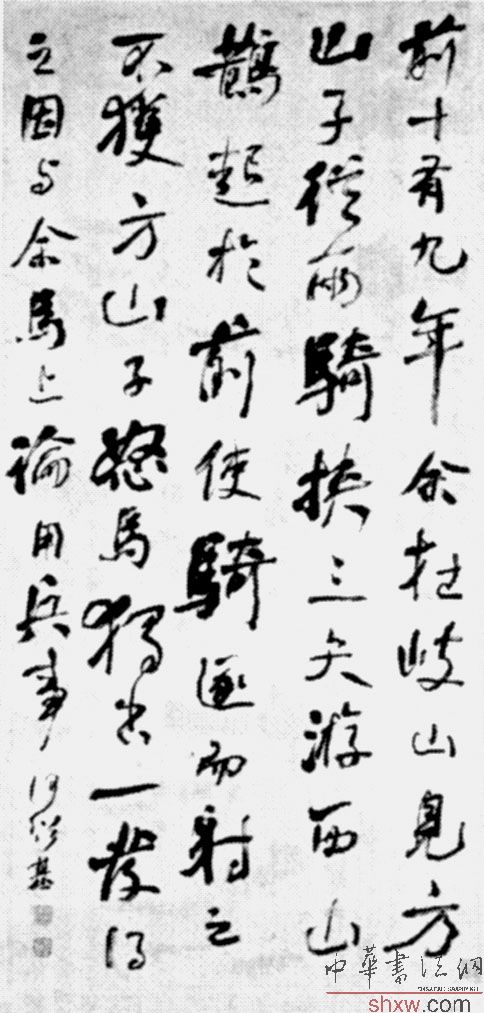 前十有九年余在岐山見方
山子從兩騎挾三矢游西山
鵲起於前使騎逐而射之
不獲方山子怒馬獨出一發得
之因与余馬上論用兵事 何紹基
中華書法網
shxw.com